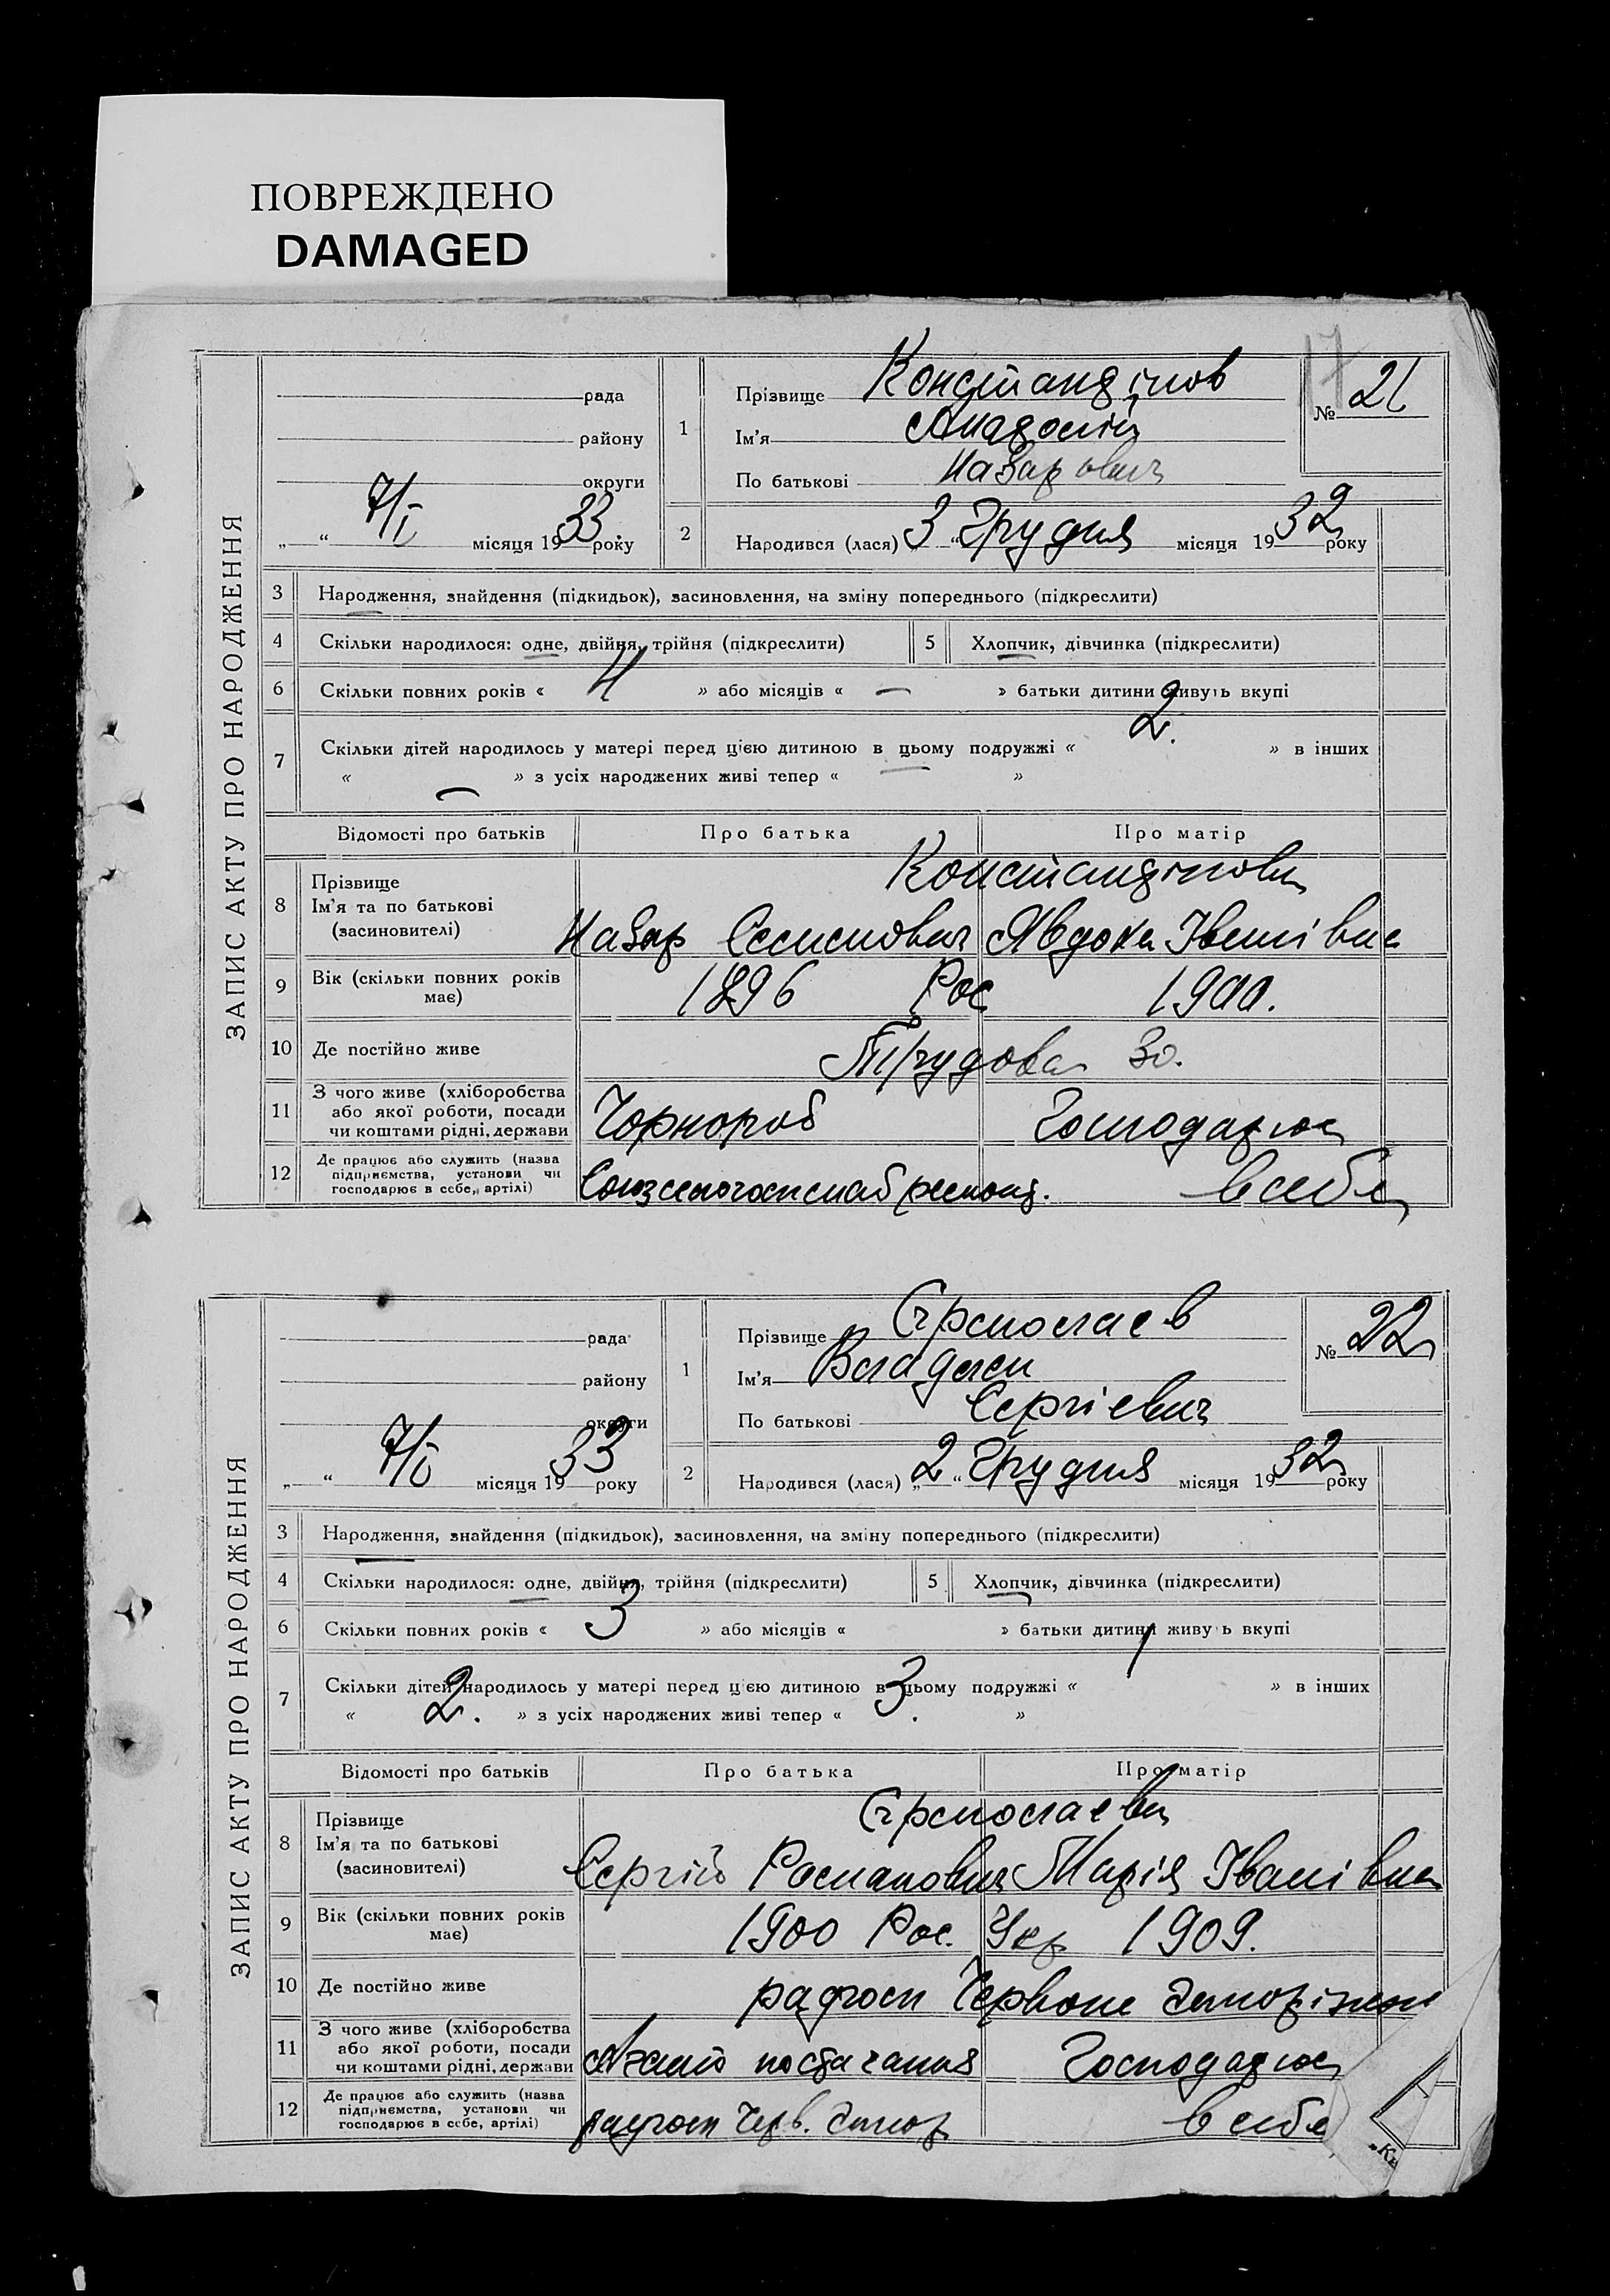 ПОВРЕЖДЕНО
DAMAGED
17
ЗАПИС АКТУ ПРО НАРОДЖЕННЯ
рада
району
округи
„ “ 7/I місяця 1933 року
1
Прізвище Констандінов
Ім’я
По батькові Назарович
№ 21
2
Народився (лася) 3 “ Грудня місяця 1932 року
3 Народження, знайдення (підкидьок), засиновлення, на зміну попереднього (підкреслити)
4 Скільки народилося: одне, двійня, трійня (підкреслити) 5 Хлопчик, дівчинка (підкреслити)
6 Скільки повних років « 4 » або місяців « — » батьки дитини живуть вкупі
7 Скільки дітей народилось у матері перед цією дитиною в цьому подружжі « 2. » в інших
« — » з усіх народжених живі тепер « — »
Відомості про батьків Про батька Про матір
8 Прізвище
Ім’я та по батькові
(засновителі)
Констандінови
Назар Семенович Явдоха Іванівна
9 Вік (скільки повних років має) 1896 Рос 1900.
10 Де постійно живе Трудова 30.
11 З чого живе (хліборобства або якої роботи, посади чи коштами рідні, держави Чорнороб Господарює
12 Де працює або служить (назва підприємства, установи чи господарює в себе, артілі) в себе
ЗАПИС АКТУ ПРО НАРОДЖЕННЯ
рада
району
округи
„ “ 7/I місяця 1933 року
1
Прізвище
Ім’я
По батькові Сергієвич
№ 22
2
Народився (лася) „ 2 “ Грудня місяця 1932 року
3 Народження, знайдення (підкидьок), засиновлення, на зміну попереднього (підкреслити)
4 Скільки народилося: одне, двійня, трійня (підкреслити) 5 Хлопчик, дівчинка (підкреслити)
6 Скільки повних років « 3 » або місяців « » батьки дитини живуть вкупі
7 Скільки дітей народилось у матері перед цією дитиною в цьому подружжі « 1 » в інших
« 2. » з усіх народжених живі тепер « 3. »
Відомості про батьків Про батька Про матір
8 Прізвище
Ім’я та по батькові
(засиновителі)
Сергій Романович Марія Іванівна
9 Вік (скільки повних років має) 1900 Рос. Укр 1909.
10 Де постійно живе радгосп Червоне
11 З чого живе (хліборобства або якої роботи, посади чи коштами рідні, держави Агент постачання Господарює
12 Де працює або служить (назва підприємства, установи чи господарює в себе, артілі) радгосп Черв. Запор в себе